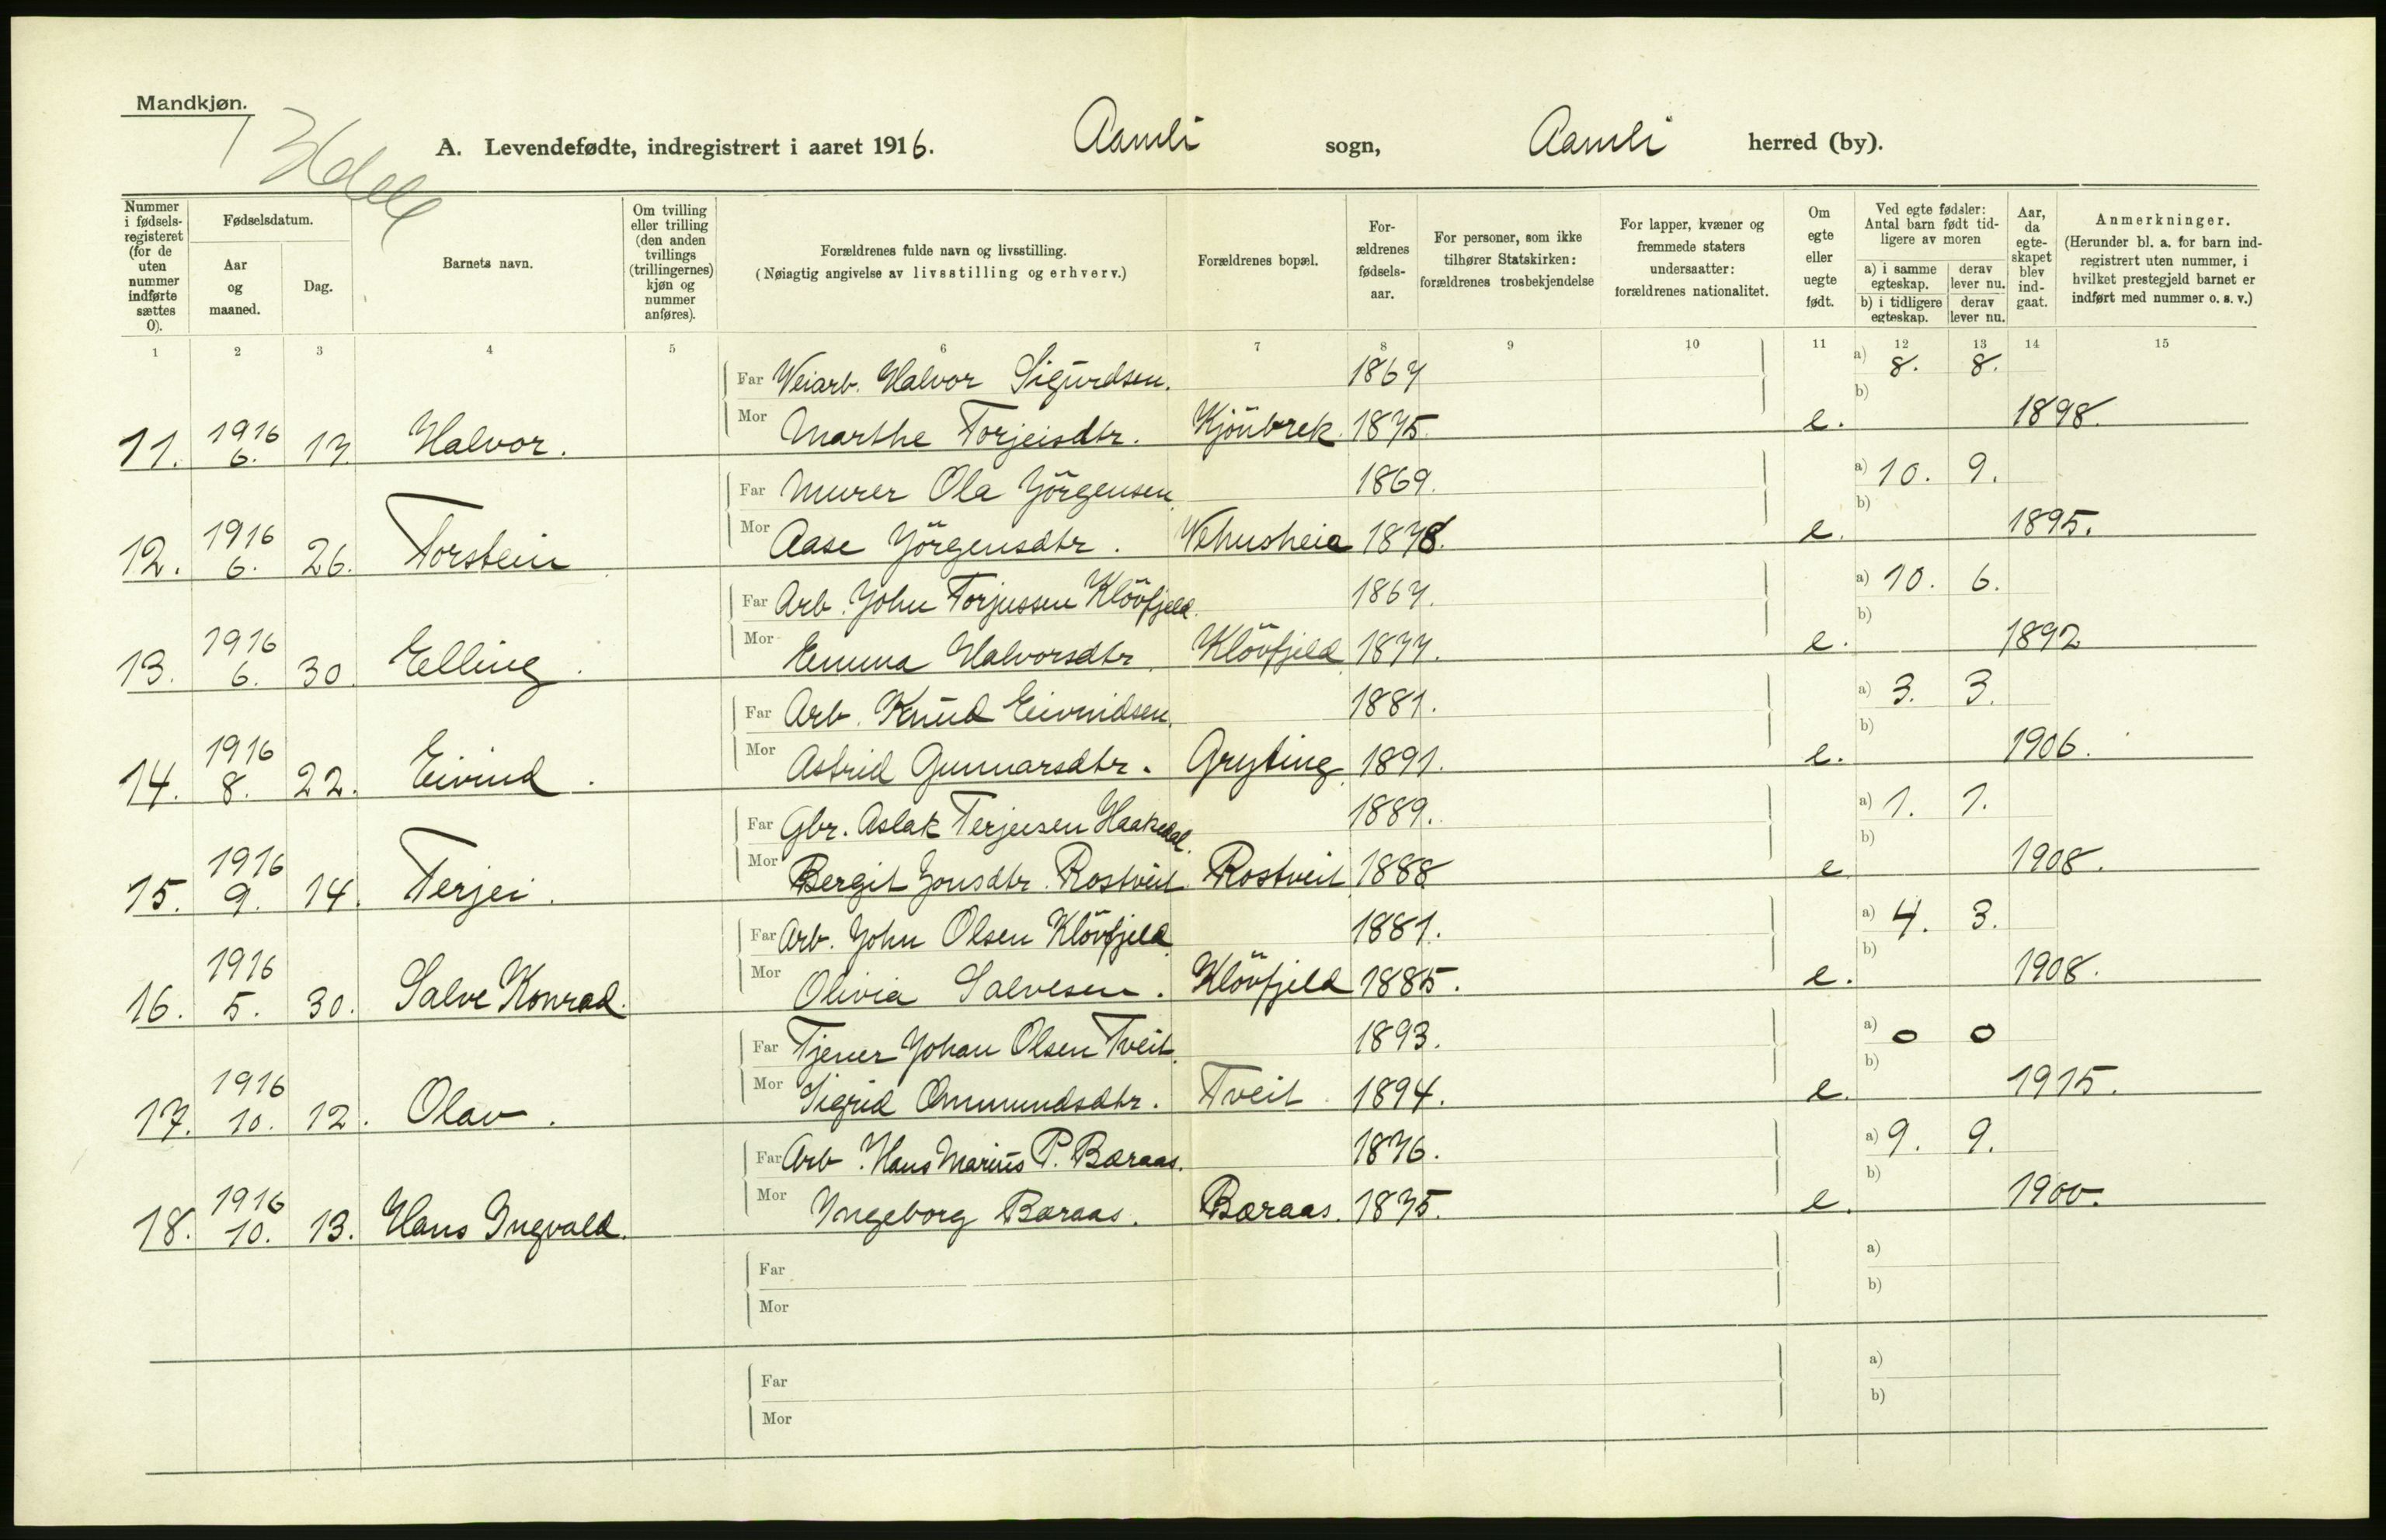 Mandkjøn.
A. Levendefødte, indregistrert i aaret 1916. Aamli sogn, Aamli herred (by).
Nummer i fødsels-registeret (for de uten nummer indførte sættes 0).
Fødselsdatum.
Aar og maaned.
Dag.
Barnets navn.
Om tvilling eller trilling (den anden tvillings (trillingernes) kjøn og nummer anføres).
Forældrenes fulde navn og livsstilling.
(Nøiagtig angivelse av livsstilling og erhverv.)
Forældrenes bopæl.
For-ældrenes fødsels-aar.
For personer, som ikke tilhører Statskirken: forældrenes trosbekjendelse
For lapper, kvæner og fremmede staters undersaatter: forældrenes nationalitet.
Om egte eller uegte født.
Ved egte fødsler: Antal barn født tid-ligere av moren
a) i samme egteskap. derav lever nu.
b) i tidligere egteskap. derav lever nu.
Aar, da egte-skapet blev ind-gaat.
Anmerkninger.
(Herunder bl. a. for barn ind-registrert uten nummer, i hvilket prestegjeld barnet er indført med nummer o. s. v.)
1 2 3 4 5 6 7 8 9 10 11 12 13 14 15
Far Veiarb. Halvor Sigurdsen. 1867 a) 8. 8.
11. 1916 6. 17. Halvor. Mor Marthe Torjeisdtr. Kjönbrek. 1875. e. b) 1898.
Far Murer Ola Jörgensen. 1869. a) 10. 9.
12. 1916 6. 26. Torstein Mor Aase Jörgensdtr. Vehusheia 1878. e. b) 1895.
Far Arb. John Torjussen Klövfjeld. 1867. a) 10. 6.
13. 1916 6. 30. Elling. Mor Emma Halvorsdtr. Klövfjeld 1877. e. b) 1892
Far Arb. Knud Eivindsen. 1881. a) 3. 3.
14. 1916 8. 22. Eivind. Mor Astrid Gunnarsdtr. Gryting. 1891. e. b) 1906.
Far Gbr. Aslak Terjeisen Haakedal. 1889. a) 1. 1.
15. 1916 9. 14. Terjei. Mor Bergit Jonsdtr. Rostveit. Rostveit 1888 e. b) 1908.
Far Arb. John Olsen Klövfjeld. 1881. a) 4. 3.
16. 1916 5. 30. Salve Konrad. Mor Olivia Salvesen. Klövfjeld 1885. e. b) 1908.
Far Tjener Johan Olsen Tveit. 1893. a) 0 0
17. 1916 10. 12. Olav. Mor Sigrid Ommundsdtr. Tveit. 1894. e. b) 1915.
Far Arb. Hans Marius P. Bæraas. 1876. a) 9. 9.
18. 1916 10. 13. Hans Ingvald. Mor Ingeborg Bæraas. Bæraas. 1875. e. b) 1900.
Far a)
Mor b)
Far a)
Mor b)